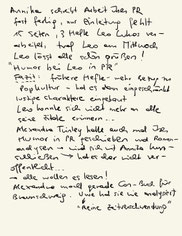 Annika schickt Arbeit über PR
fast fertig, nur Einleitung fehlt
15 Seiten, 3 Hefte Leo Lukas ver-
arbeitet, traf Leo am Mittwoch
Leo lässt alle schön grüßen!
"Humor bei Leo in PR"
Fazit: frühere Hefte mehr Bezug zu
Popkultur - hat es dann eingeschränkt
lustige Charaktere eingebaut
Leo konnte sich nicht mehr an alle
seine Zitate erinnern...
Alexandra Trinley hatte auch mal über
Humor in PR geschrieben und Roman-
analysen → wird sich mit Annika kurz-
schließen → hat es aber nicht ver-
öffentlicht...
→ alle wollen es lesen!
Alexandra macht gerade Con-Buch für
Braunschweig. Und hat sie wie
"keine Zeitverschwendung"